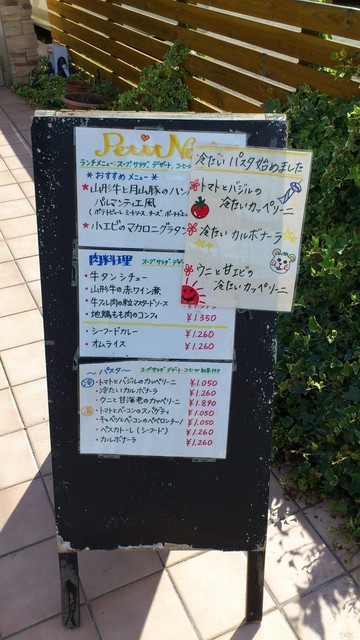 Petit No
ランチメニュー:スープ、サラダ、デザート、コーヒー
＊おすすめ メニュー＊
★山形牛と月山豚のハン
パルマンティエ風
★小エビのマカロニグラタン
冷たい パスタ始めました
トマトとバジルの
冷たいカッペリーニ
冷たい カルボナーラ
ウニと甘エビの
冷たいカッペリーニ
肉料理 スープ サラダ デザ
・牛タンシチュー
・山形牛の赤ワイン煮
・牛フレ肉の粒マスタードソース
・地鶏もも肉のコンフィ ¥1.350
・シーフードカレー ¥1.260
・オムライス ¥1.260
～パスタ～ スープ サラダ デザート コーヒー or 紅茶 付き
冷 ・トマトとバジルのカッペリーニ ¥1.050
・冷たいカルボナーラ ¥1.260
・ウニと甘海老のカッペリーニ ¥1.890
温 ・トマトとベーコンのスパゲティ ¥1.050
・キャベツとベーコンのペペロンチーノ ¥1.050
・ペスカトーレ(シーフード) ¥1.260
・カルボナーラ ¥1.260